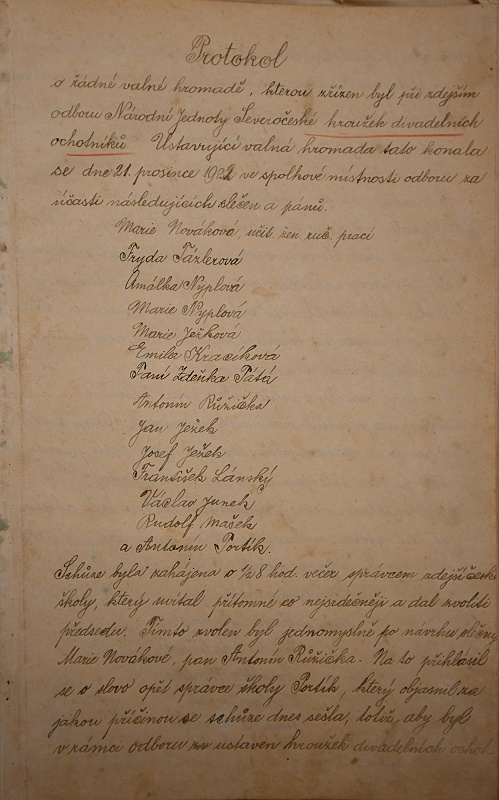 Protokol
o řádné valné hromadě, kterou zřízen byl při zdejším
odboru Národní Jednoty Severočeské kroužek divadelních
ochotníků. Ustavující valná hromada tato konala
se dne 21. prosince 1922 ve spolkové místnosti odboru za
účasti následujících slečen a pánů.
Marie Nováková, učit. žen. ruč. prací
Fryda Fázlerová
Amálka Nyplová
Marie Nyplová
Marie Ježková
Emila Kracíková
Paní Zdeňka Pátá
Antonín Růžička
Jan Ježek
Josef Ježek
František Lánský
Václav Junek
Rudolf Mašek
a Antonín Portík.
Schůze byla zahájena o 1/2 8 hod. večer správcem zdejší české
školy, který uvítal přítomné co nejsrdečněji a dal zvoliti
předsedu. Tímto zvolen byl jednomyslně po návrhu slečny
Marie Novákové, pan Antonín Růžička. Na to přihlásil
se o slovo opět správce školy Portík, který objasnil za
jakou příčinou se schůze dnes sešla, totiž, aby byl
v rámci odboru ustaven kroužek divadelních ochot